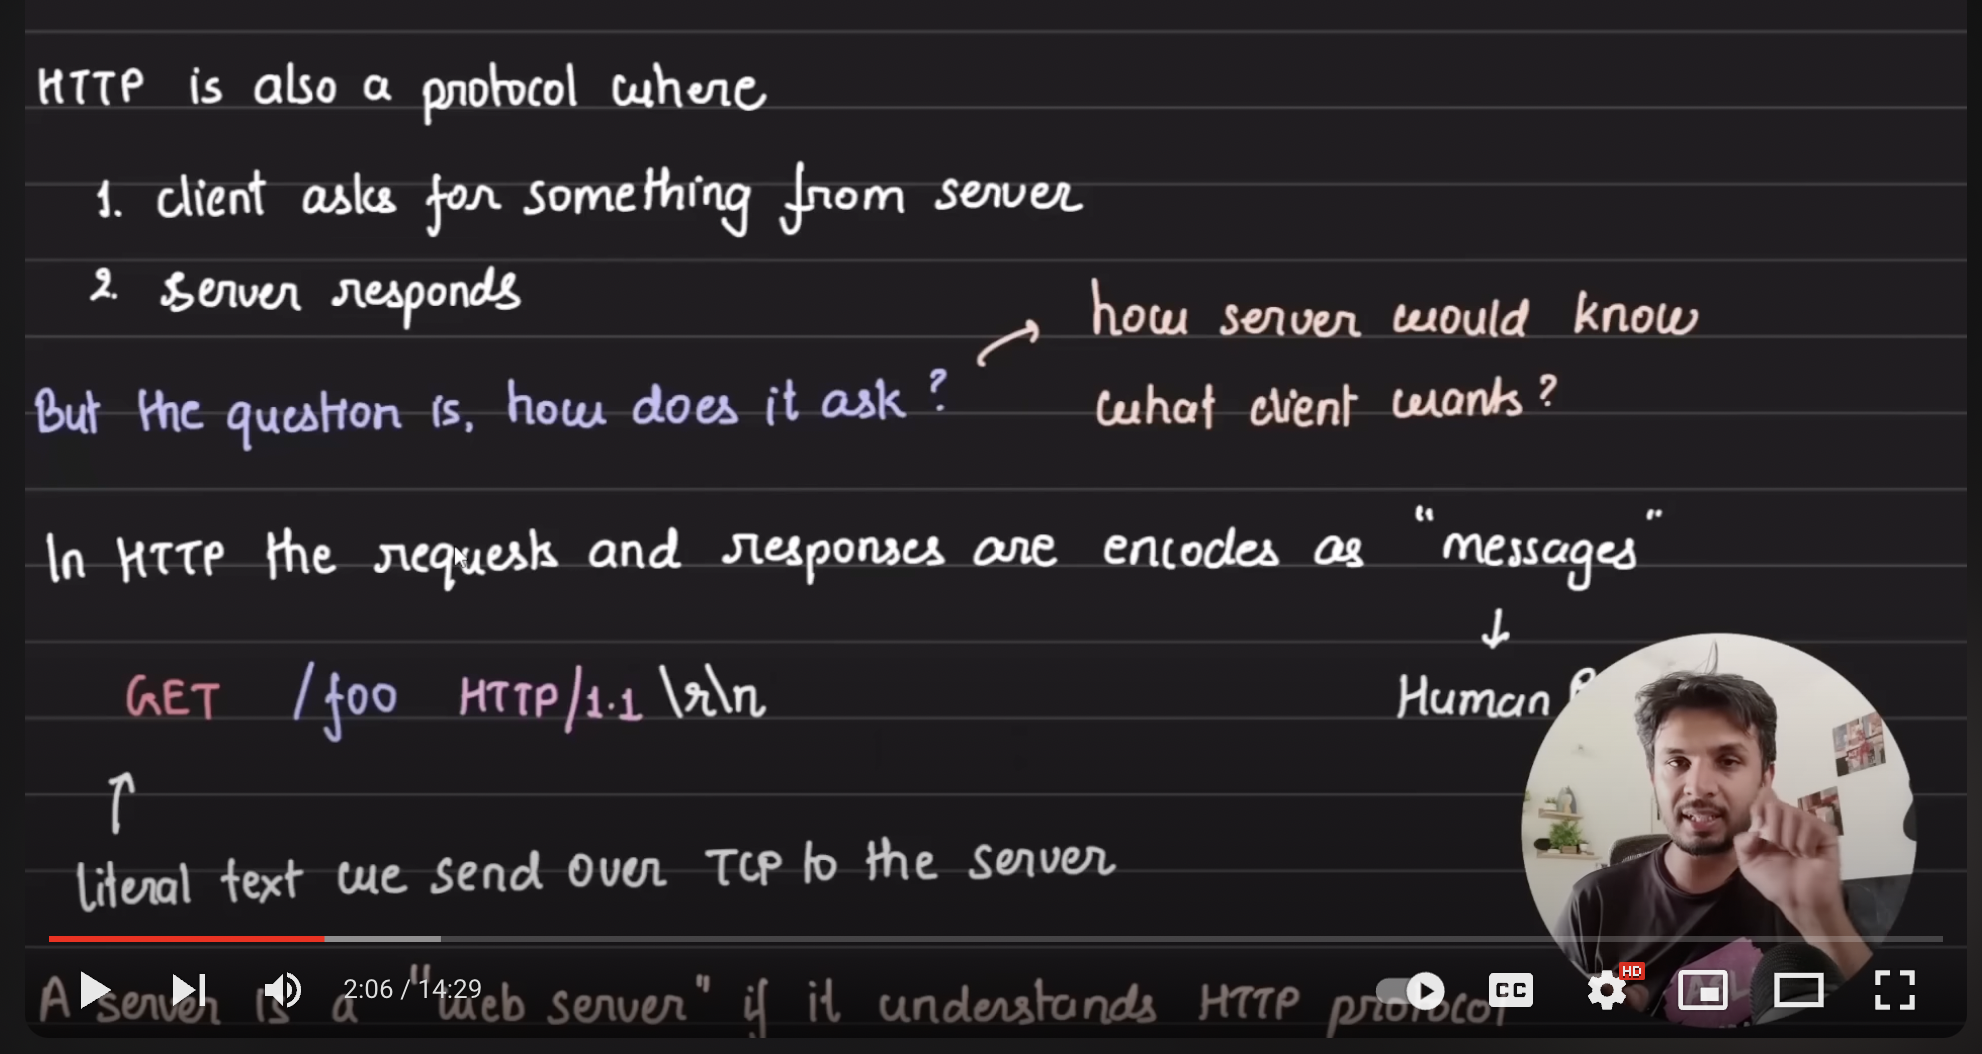 HTTP is also a protocol where
1. client asks for something from server
2. server responds
But the question is, how does it ask ?
how server would know
what client wants ?
In HTTP the requests and responses are encodes as "messages"
Human
GET /foo HTTP/1.1 \r\n
literal text we send over TCP to the server
A server is a "web server" if it understands HTTP protocol
2:06 / 14:29
CC
HD